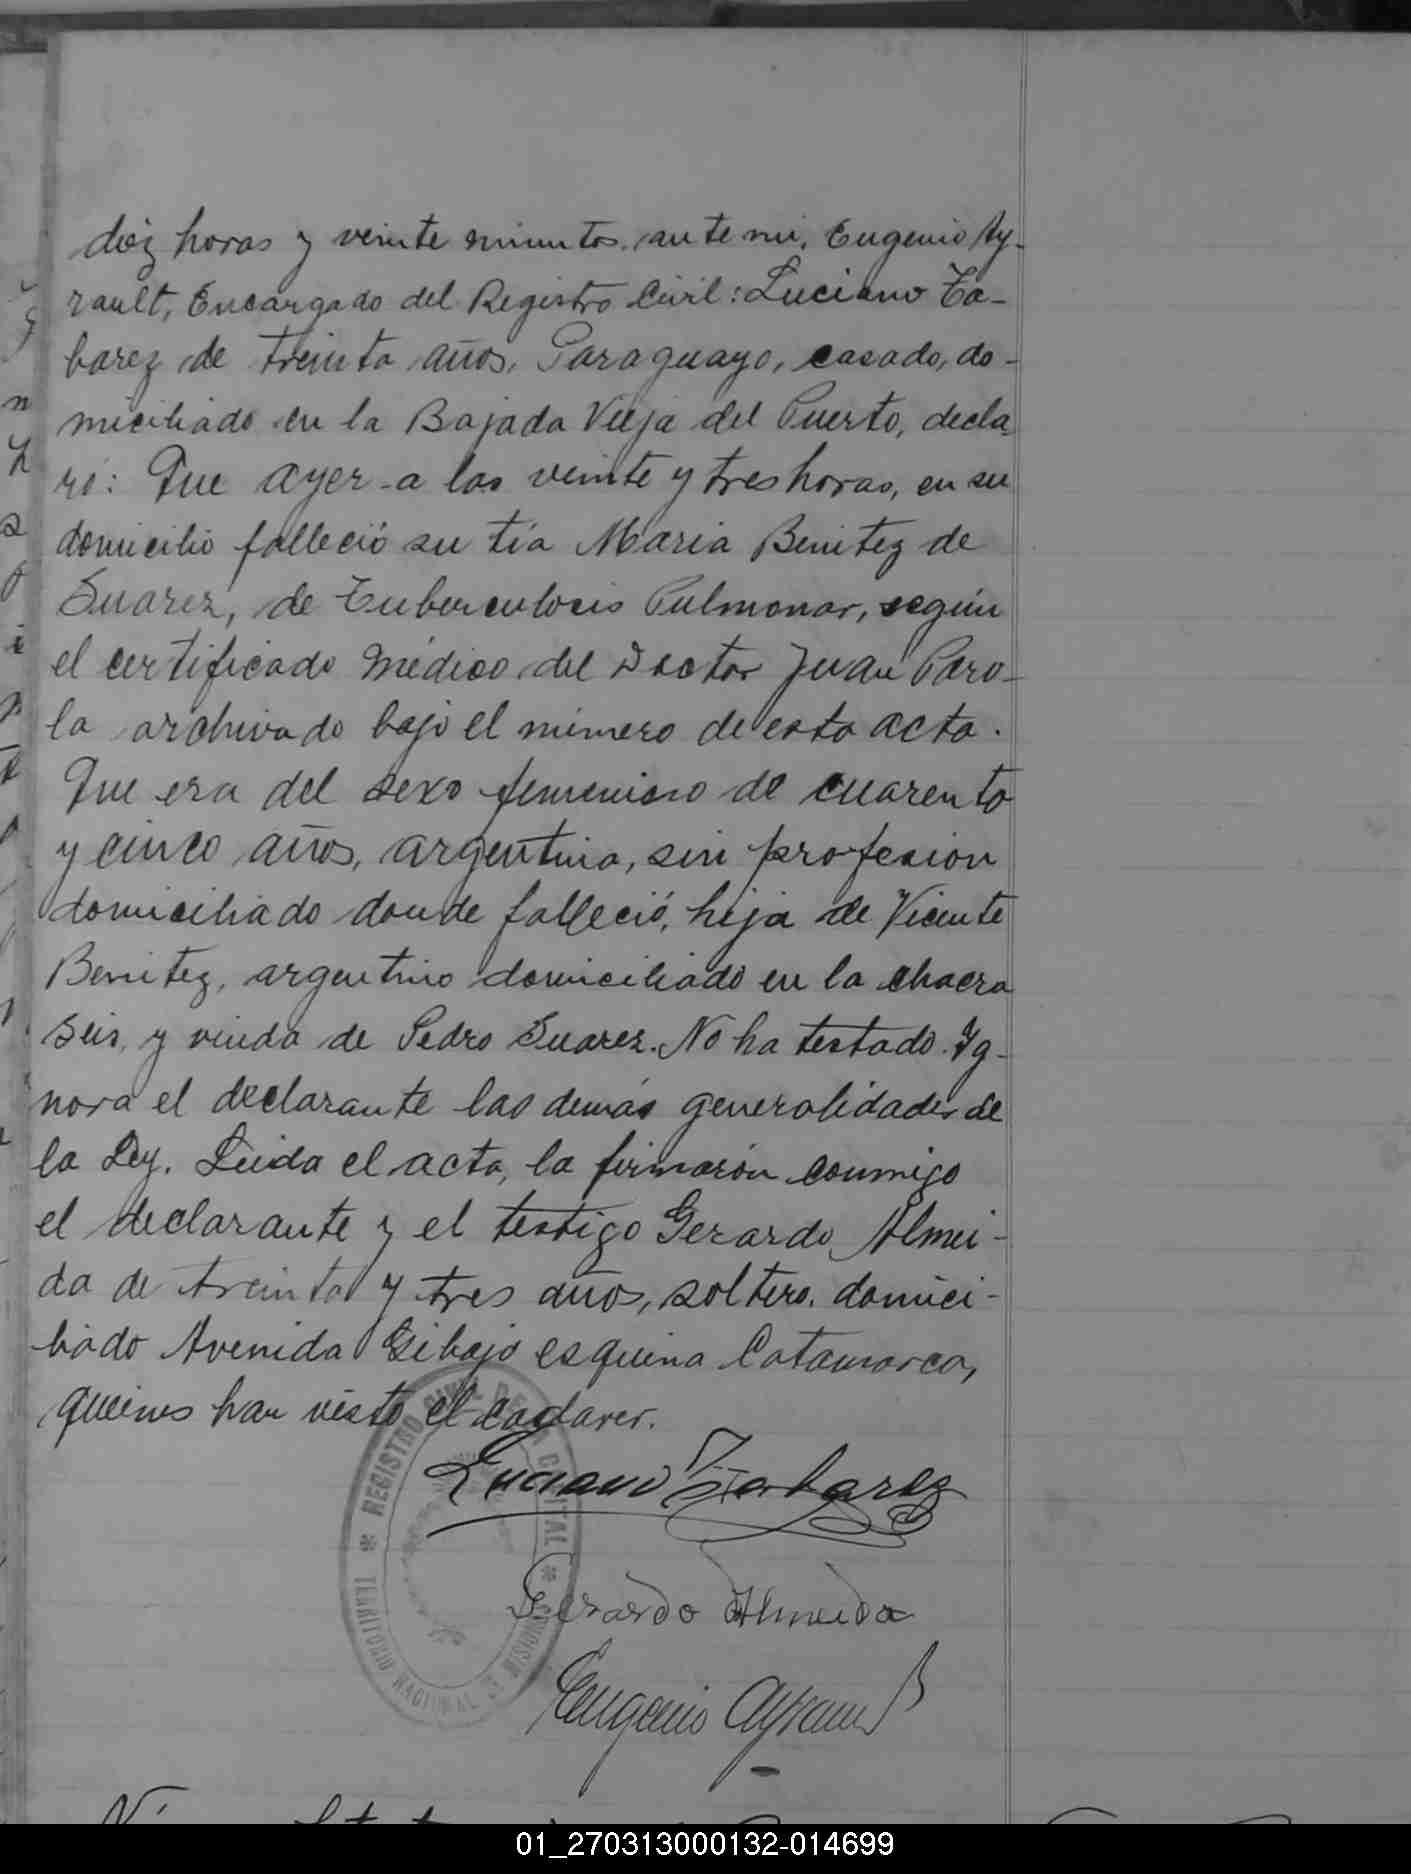 diez horas y veinte minutos, ante mi, Eugenio Ay-
rault, Encargado del Registro Civil: Luciano Ta-
barez de treinta años, Paraguayo, casado, do-
miciliado en la Bajada Vieja del Puerto, decla
ró: Que ayer a las veinte y tres horas, en su
domicilio falleció su tia Maria Benitez de
Suarez, de Tuberculosis Pulmonar, según
el certificado médico del Doctor Juan Paro-
la archivado bajo el número de esta acta.
Que era del sexo femenino de cuarenta
y cinco años, argentina, sin profesion
domiciliado donde falleció, hija de Vicente
Benitez, argentino domiciliado en la chacra
seis, y viuda de Pedro Suarez. No ha testado. Ig-
nora el declarante las demás generalidades de
la Ley. Leida el acta, la firmaron conmigo
el declarante y el testigo Gerardo Almei-
da de treinta y tres años, soltero, domici-
liado Avenida esquina Catamarca,
quienes han visto el cadaver.
Luciano Tabarez
Gerardo Almeida
Eugenio Ayrault
REGISTRO CIVIL DE LA CAPITAL
TERRITORIO NACIONAL DE MISIONES
01_270313000132-014699